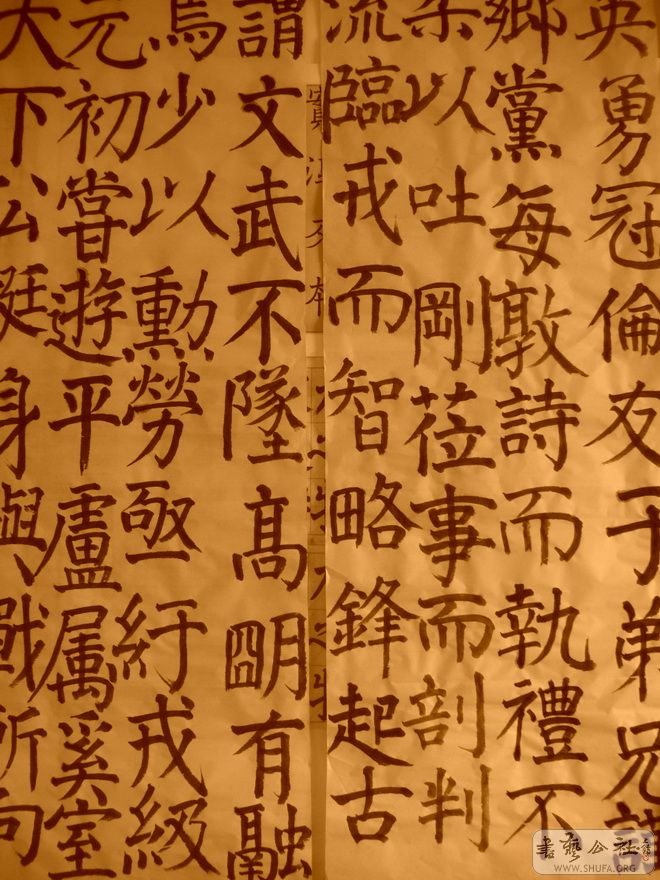 英勇冠倫友于弟兄謙
鄉黨每敦詩而執禮不
柔以吐剛莅事而剖判
流臨戎而智略鋒起古
謂文武不墜高朙有融
焉少以勳勞亟紆戎級
元初嘗遊平盧属奚室
大下公挺身與戰所向
書藝公社
WWW.SHUFA.ORG